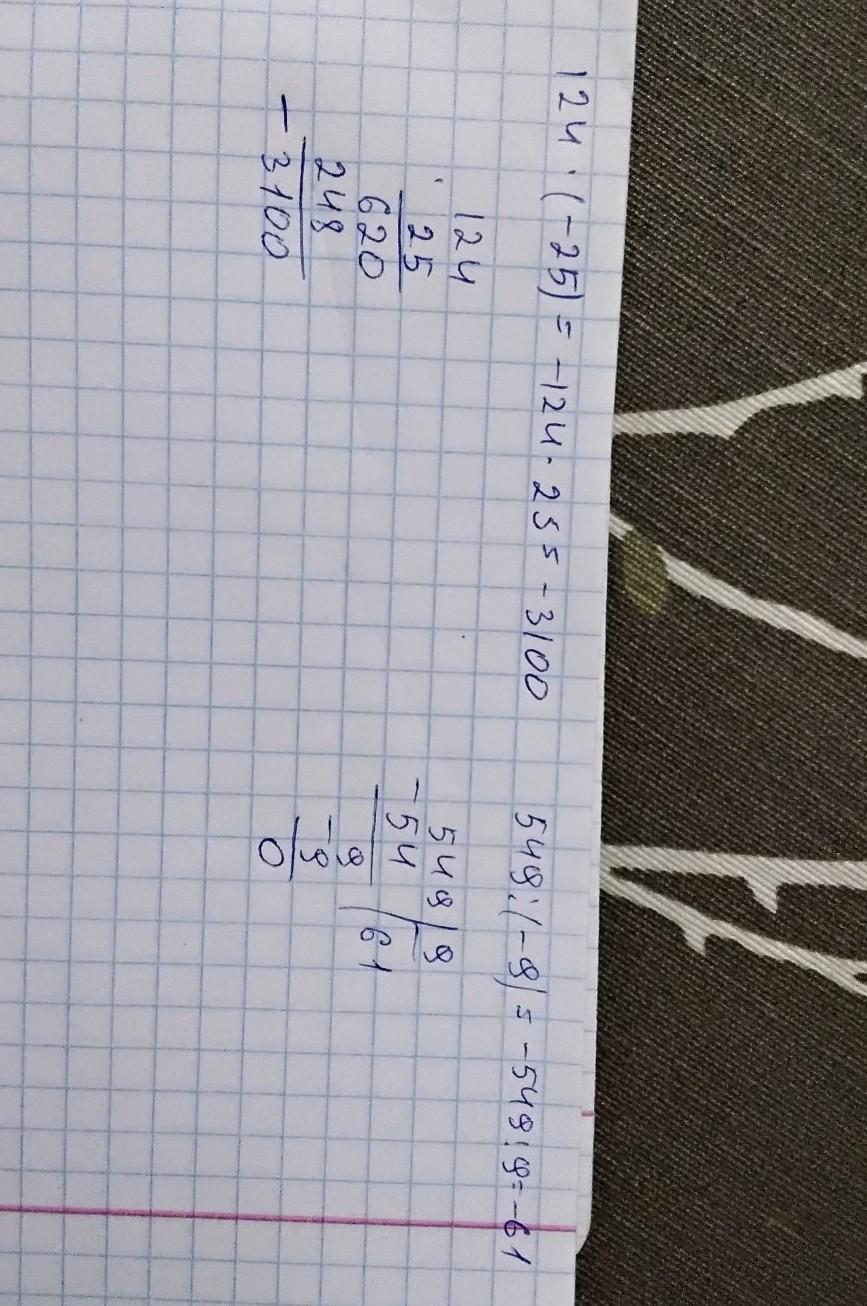 124 · (-25) = -124 · 25 = -3100
124
25
620
248
- 3100
549 : (-9) = -549 : 9 = -61
549 | 9
- 54 | 61
9
- 9
0